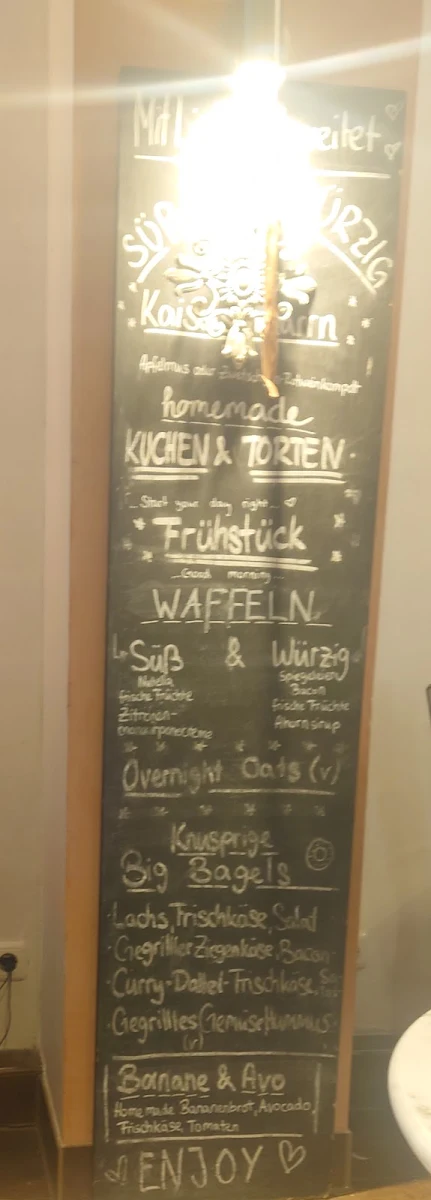 Mit
SÜ ÜRZIG
Apfelmus oder
homemade
KUCHEN & TORTEN
Start your day right...
Frühstück
...Good morning...
WAFFELN
Süß & Würzig
Nutella
frische Früchte
Zitronen-
Spiegeleier
Bacon
frische Früchte
Ahornsirup
Overnight Oats (v)
Knusprige
Big Bagels
Lachs, Frischkäse, Salat
Gegrillter Ziegenkäse, Bacon
Curry-Dattel-Frischkäse,
Gegrilltes Gemüse Hummus
(v)
Banane & Avo
Homemade Bananenbrot, Avocado,
Frischkäse, Tomaten
ENJOY